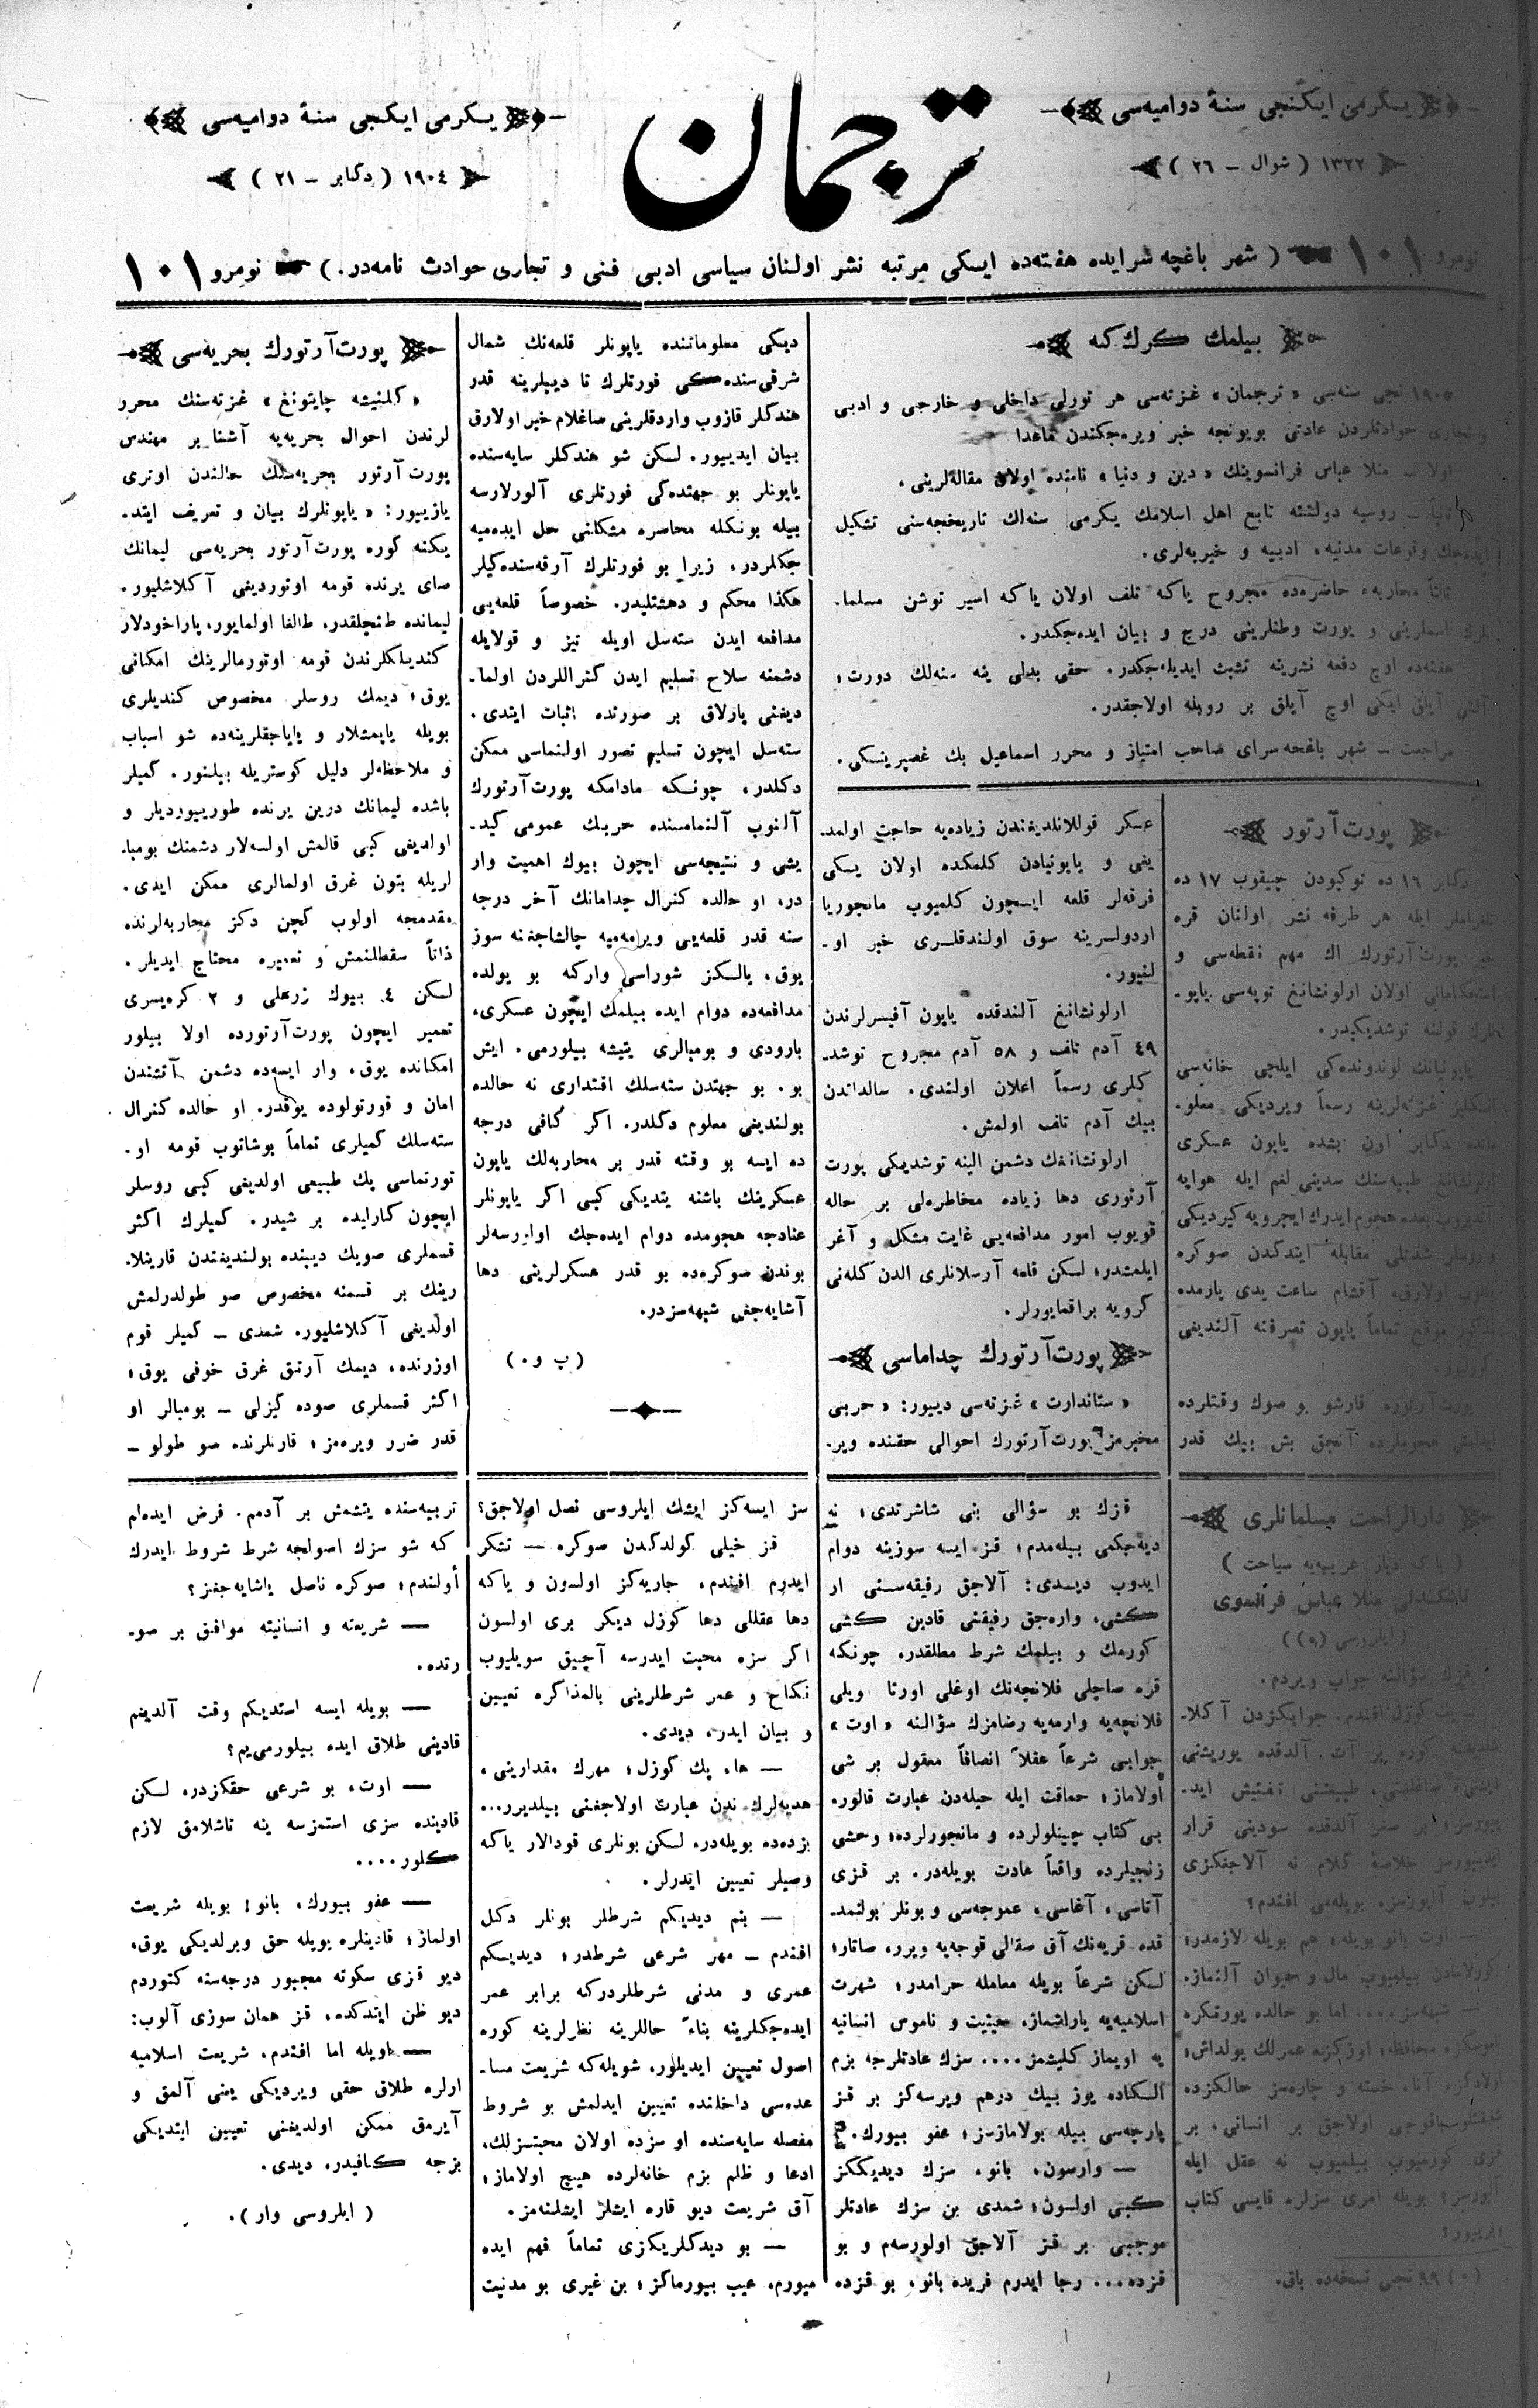 یكرمی ایكنجی سنهٔ دوامیه‌سی
١٣٢٢ ( شوال – ٢٦ )
ترجمان
یكرمی ایكجی سنهٔ دوامیه‌سی
١٩٠٤ ( دكابر – ٢١ )
نومرو ١٠١
( شهر باغچه سرایده هفته‌ده ایكی مرتبه نشر اولنان سیاسی ادبی فنی و تجاری حوادث نامه‌در. )
نومرو ١٠١
بیلمك كرك كه
١٩٠٥ نجی سنه‌سی «ترجمان» غزته‌سی هر تورلی داخلی و خارجی و ادبی
و تجاری حوادثلردن عادتی بویونجه خبر ویره‌جكندن ماعدا
اولا – منلا عباس فرانسوینك «دین و دنیا» نامنده اولان مقاله‌لرینی.
ثانیاً – روسیه دولتنه تابع اهل اسلامك یكرمی سنه‌لك تاریخجه‌سنی تشكیل
ایده‌جك وقوعات مدنیه، ادبیه و خیریه‌لری.
ثالثاً محاربهء حاضره‌ده مجروح یاكه تلف اولان یاكه اسیر توشن مسلما-
نلرك اسملرینی و یورت وطنلرینی درج و بیان ایده‌جكدر.
هفته‌ده اوچ دفعه نشرینه تشبث ایدیله‌جكدر. حقی بدلی ینه سنه‌لك دورت؛
آلتی آیلق ایكی اوچ آیلق بر روبله اولاجقدر.
مراجعت – شهر باغچه‌سرای صاحب امتیاز و محرر اسماعیل بك غصپرینسكی.
پورت آرتور
دكابر ١٦ ده توكیودن چیقوب ١٧ ده
تلغرافلر ایله هر طرفه نشر اولنان قره
خبر پورت آرتورك اك مهم نقطه‌سی و
استحكاماتی اولان ارلونشانغ توپه‌سی یاپو-
نلرك قولنه توشدیكیدر.
یاپونیانك لوندونده‌كی ایلچی خانه‌سی
انكلیز غزته‌لرینه رسماً ویردیكی معلو-
ماتده دكابر اون بشده یاپون عسكری
ارلونشانغ طبیه‌سنك سدینی لغم ایله هوایه
آتدیروب بعده هجوم ایدرك ایچرویه كیردیكی
و روسلر شدتلی مقابله ایتدكدن صوكره
مغلوب اولارق، آقشام ساعت یدی یارمده
مذكور موقع تماماً یاپون تصرفنه آلندیغی
كورلیور.
پورت آرتوره قارشو بو صوك وقتلرده
ایدلمش هجوملرده آنجق بش بیك قدر
عسكر قوللانلدیغندن زیاده‌یه حاجت اولمد-
یغی و یاپونیادن كلمكده اولان یكی
فرقه‌لر قلعه ایچون كلمیوب مانجوریا
اردولرینه سوق اولندقلری خبر او-
لنیور.
ارلونشانغ آلندقده یاپون آفیسرلرندن
٤٩ آدم تلف و ٥٨ آدم مجروح توشد-
كلری رسماً اعلان اولندی. سالداتدن
بیك آدم تلف اولمش.
ارلونشانغك دشمن الینه توشدیكی پورت
آرتوری دها زیاده مخاطره‌لی بر حاله
قویوب امور مدافعه‌یی غایت مشكل و آغر
ایلمشدر؛ لكن قلعه آرسلانلری الدن كله‌نی
گرویه براقمایورلر.
پورت آرتورك چداماسی
«ستاندارت» غزته‌سی دییور: «حربی
مخبرمز پورت آرتورك احوالی حقنده ویر-
دیكی معلوماتنده یاپونلر قلعه‌نك شمال
شرقی سنده‌كی فورتلرك تا دیپلرینه قدر
هندكلر قازوب واردقلرینی صاغلام خبر اولارق
بیان ایدییور. لكن شو هندكلر سایه‌سنده
یاپونلر بو جهتده‌كی فورتلری آلورلارسه
بیله بونكله محاصره مشكلنی حل ایده‌میه
جكلردر، زیرا بو فورتلرك آرقه‌سنده‌كیلر
هكذا محكم و دهشتلیدر. خصوصاً قلعه‌یی
مدافعه ایدن سته‌سل اویله تیز و قولایله
دشمنه سلاح تسلیم ایدن گنراللردن اولما-
دیغنی پارلاق بر صورتده اثبات ایتدی.
سته‌سل ایچون تسلیم تصور اولنماسی ممكن
دكلدر، چونكه مادامكه پورت آرتورك
آلنوب آلنمامسنده حربك عمومی كید-
یشی و نتیجه‌سی ایچون بیوك اهمیت وار
در، او حالده كنرال چدامانك آخر درجه
سنه قدر قلعه‌یی ویرمه‌میه چالشاجغنه سوز
یوق. یالكز شوراسی واركه بو یولده
مدافعه‌ده دوام ایده بیلمك ایچون عسكری،
بارودی و بومبالری یتیشه بیلورمی. ایش
بو. بو جهتدن سته‌سلك اقتداری نه حالده
بولندیغی معلوم دكلدر. اگر كافی درجه
ده ایسه بو وقته قدر بر محاربه‌لك یاپون
عسكرینك باشنه یتدیكی كبی اگر یاپونلر
عنادجه هجومده دوام ایده‌جك اولیرسه‌لر
بوندن صوكره‌ده بو قدر عسكرلرینی دها
آشایه‌جغی شبهه‌سزدر.
( پ و. )
پورت آرتورك بحریه‌سی
«كلنیشه چایتونغ» غزته‌سنك محرر
لرندن احوال بحریه‌یه آشنا بر مهندس
پورت آرتور بحریه‌سنك حالندن اوتری
یازییور: «یاپونلرك بیان و تعریف ایتد-
یكنه كوره پورت آرتور بحریه‌سی لیمانك
صای یرنده قومه اوتوردیغی آكلاشلیور.
لیمانده طنچلقدر، طالغا اولمایور، پاراخودلار
كندیلكلرندن قومه اوتورمالرینك امكانی
یوق؛ دیمك روسلر مخصوص كندیلری
بویله یاپمشلار و یاپاجقلرینه‌ده شو اسباب
و ملاحظه‌لر دلیل كوستریله بیلنور. گمیلر
باشده لیمانك درین یرنده طوریبوردیلر و
اولدیغی كبی قالمش اولسه‌لار دشمنك بومبا-
لریله بتون غرق اولمالری ممكن ایدی.
مقدمجه اولوب كچن دكز محاربه‌لرنده
ذاتاً سقطلنمش و تعمیره محتاج ایدیلر.
لكن ٤ بیوك زرهلی و ٢ كره‌یسری
تعمیر ایچون پورت آرتورده اولا بیلور
امكانده یوق. وار ایسه‌ده دشمن آتشندن
امان و قورتولوده یوقدر. او حالده كنرال
سته‌سلك گمیلری تماماً بوشاتوب قومه او-
تورتماسی پك طبیعی اولدیغی كبی روسلر
ایچون كارایده بر شیدر. گمیلرك اكثر
قسملری صویك دیبنده بولندیغندن قارینلا-
رینك بر قسمنه مخصوص صو طولدرلمش
اولدیغی آكلاشلیور. شمدی – گمیلر قوم
اوزرنده، دیمك آرتق غرق خوفی یوق؛
اكثر قسملری صوده گیزلی – بومبالر او
قدر ضرر ویره‌مز؛ قارنلرنده صو طولو –
دارالراحت مسلمانلری
( یاكه دیار غریبه‌یه سیاحت )
تاشكندلی منلا عباس فرانسوی
( ایلروسی (*) )
قزك سؤالنه جواب ویردم.
– پك كوزل افندم. جوابكزدن آكلا-
شلدیغنه كوره بر آت آلدقده یوریشنی
بیلوب آلیورسز. بویله‌می افندم؟
– اوت بانو بویله؛ هم بویله لازمدر؛
كورلمادن بیلمیوب مال و حیوان آلنماز.
– شبهه‌سز.... اما بو حالده یورتكزه
ناموسكزه محافظه؛ اوزكزه عمرلك یولداش؛
اولادكزه آنا، خسته و چاره‌سز حالكزده
قزی كورمیوب بیلمیوب نه عقل ایله
آلیورسز؛ بویله امری سزلره قایسی كتاب
ایدییور؟
( * ) ٩٩ نجی نسخه‌ده باق.
قزك بو سؤالی بنی شاشرتدی؛ نه
دیه‌جكمی بیله‌مدم؛ قز ایسه سوزینه دوام
ایدوب دیدی: آلاجق رفیقه‌سنی ار
كشی، واره‌جق رفیقنی قادین كشی
كورمك و بیلمك شرط مطلقدر، چونكه
قره صاچلی فلانچه‌نك اوغلی اورتا ویلی
فلانچه‌یه وارمه‌یه رضامزك سؤالنه «اوت»
جوابی شرعاً عقلاً انصافاً معقول بر شی
اولاماز؛ حماقت ایله حیله‌دن عبارت قالور.
بی كتاب چینلولرده و مانجورلرده؛ وحشی
زنجیلرده واقعاً عادت بویله‌در. بر قزی
آتاسی، آغاسی، عموجه‌سی و بونلر بولنمد-
قده قریه‌نك آق صقالی قوجه‌یه ویرر، صاتار؛
لكن شرعاً بویله معامله حرامدر؛ شهرت
اسلامیه‌یه یاراشماز، حیثیت و ناموس انسانیه
یه اویماز كلیشمز.... سزك عادتلرجه بزم
السكاده یوز بیك درهم ویرسه‌كز بر قز
پارچه‌سی بیله بولامازسز؛ عفو بیورك.
– وارسون، بانو، سزك دیدیككز
كبی اولسون؛ شمدی بن سزك عادتلر
موجبی بر قز آلاجق اولورسه‌م و بو
قزده... رجا ایدرم فریده بانو، بو قزده
سز ایسه‌كز ایشك ایلروسی نصل اولاجق؟
قز خیلی كولدكدن صوكره – تشكر
ایدرم افندم، جاریه‌كز اولسون و یاكه
دها عقللی دها كوزل دیكر بری اولسون
اگر سزه محبت ایدرسه آچیق سویلیوب
نكاح و عمر شرطلرینی بالمذاكره تعیین
و بیان ایدر، دیدی.
– ها، پك كوزل؛ مهرك مقدارینی،
هدیه‌لرك ندن عبارت اولاجغنی بیلدیرر...
بزده‌ده بویله‌در، لكن بونلری قودالار یاكه
وصیلر تعیین ایدرلر.
– بنم دیدیكم شرطلر بونلر دكل
افندم – مهر شرعی شرطدر؛ دیدیكم
عمری و مدنی شرطلردركه برابر عمر
ایده‌جكلرینه بناءً حاللرینه نظرلرینه كوره
اصول تعیین ایدیلور، شویله‌كه شریعت مسا-
عده‌سی داخلنده تعیین ایدلمش بو شروط
مفصله سایه‌سنده او سزده اولان محبتسزلك،
ادعا و ظلم بزم خانه‌لرده هیچ اولاماز؛
آق شریعت دیو قاره ایشلر ایشلنه‌مز.
– بو دیدكلریكزی تماماً فهم ایده
میورم. عیب بیورماكز؛ بن غیری بو مدنیت
تربیه‌سنده یتشمش بر آدمم. فرض ایده‌لم
كه شو سزك اصولجه شرط شروط ایدرك
أولندم؛ صوكره ناصل یاشایه‌جغز؟
– شریعته و انسانیته موافق بر صو-
رتده.
– بویله ایسه استدیكم وقت آلدیغم
قادینی طلاق ایده بیلورمی‌یم؟
– اوت، بو شرعی حقكزدر، لكن
قادینده سزی استمزسه ینه تاشلامق لازم
كلور....
– عفو بیورك، بانو! بویله شریعت
اولماز؛ قادینلره بویله حق ویرلدیكی یوق،
دیو قزی سكوته مجبور درجه‌سنه كتوردم
دیو ظن ایتدكده، قز همان سوزی آلوب:
– اویله اما افندم، شریعت اسلامیه
ارلره طلاق حقی ویردیكی یعنی آلمق و
آیرمق ممكن اولدیغنی تعیین ایتدیكی
بزجه كافیدر، دیدی.
( ایلروسی وار ).